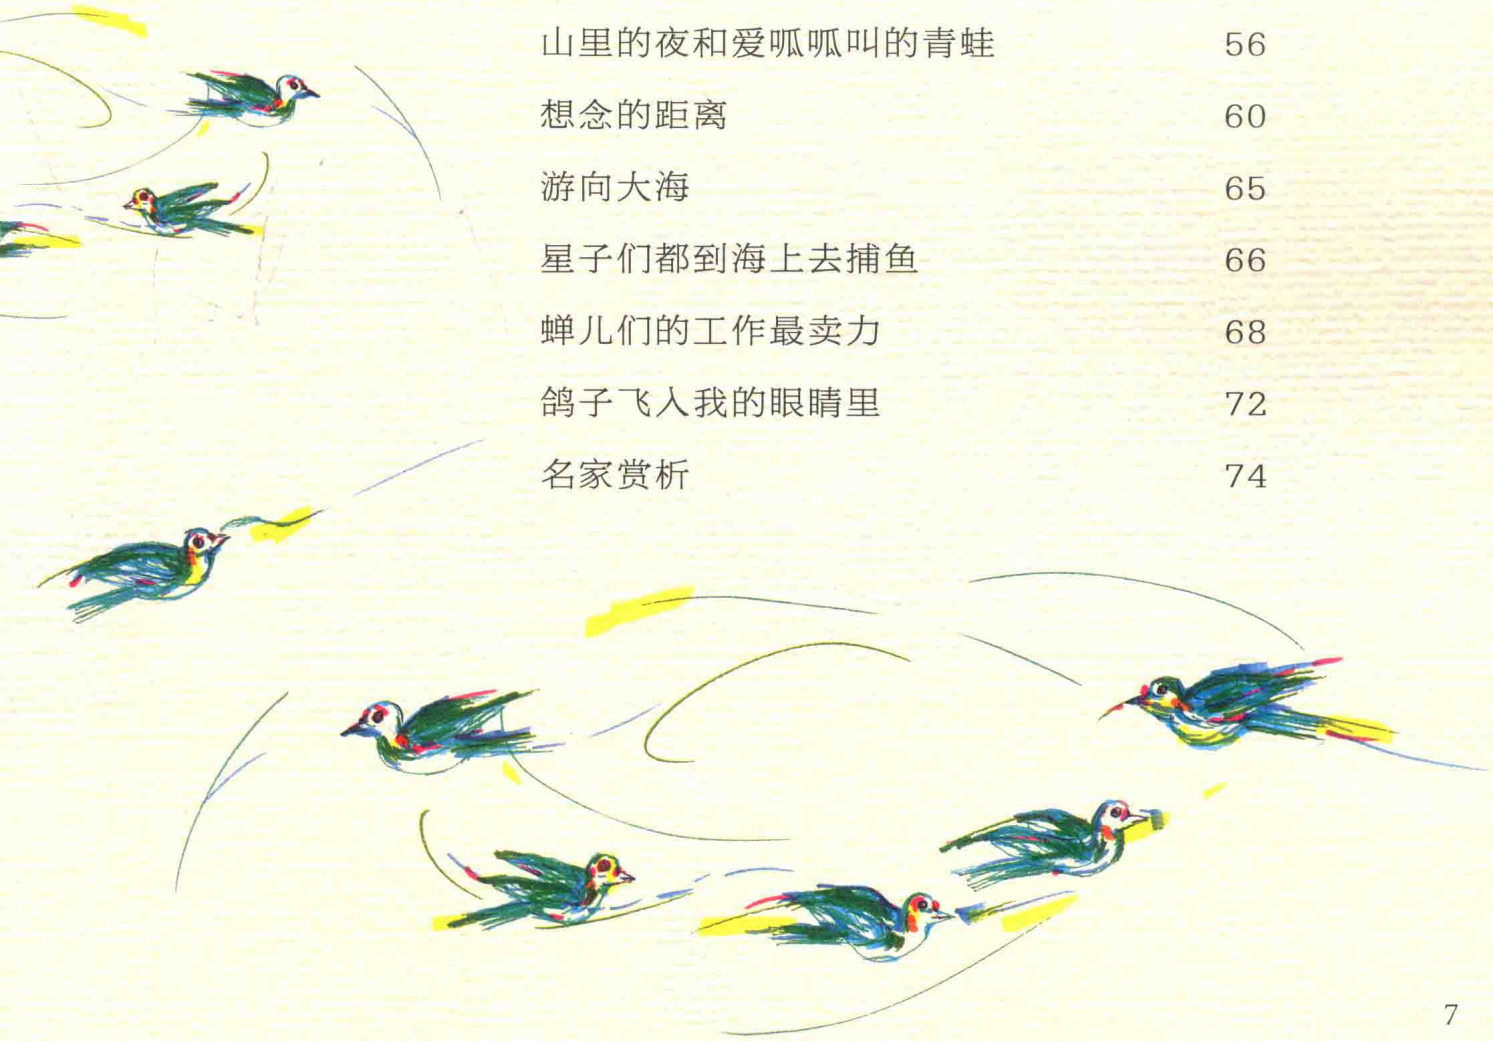 山里的夜和爱呱呱叫的青蛙 56
想念的距离 60
游向大海 65
星子们都到海上去捕鱼 66
蝉儿们的工作最卖力 68
鸽子飞入我的眼睛里 72
名家赏析 74
7